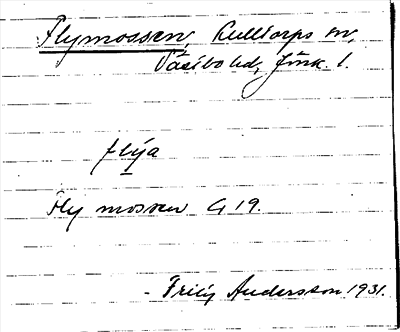 Flymossen, Kulltorps sn,
Västbo hd, Jönk. l.
flýa
Fly mossen G 19.
- Frily Andersson 1931.